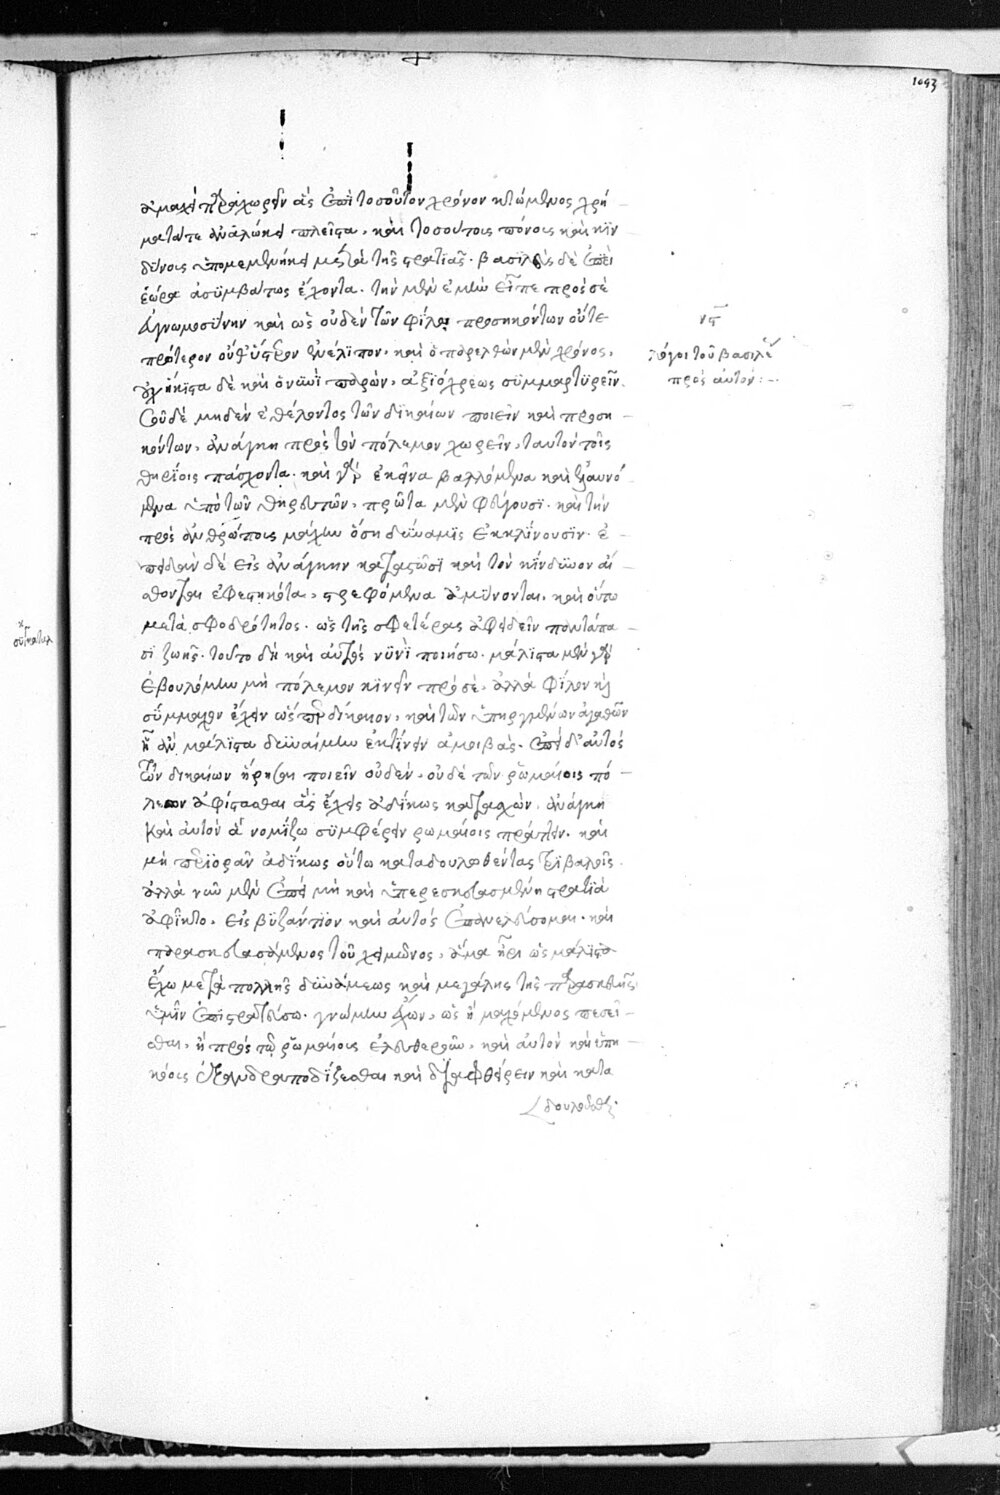 1093
ἀμαχεὶ παραχωρεῖν ἃς ἐπὶ τοσοῦτον χρόνον κτώμενος χρή
ματά τε ἀναλώκει πλεῖστα, καὶ τοσούτοις πόνοις καὶ κιν
δύνοις ὑπομεμενήκει μετὰ τῆς στρατιᾶς. βασιλεὺς δὲ ἐπεὶ
ἑώρα ἀσυμβάτως ἔχοντα. τὴν μὲν ἐμὴν εἶπε πρὸς σὲ
εὐγνωμοσύνην καὶ ὡς οὐδὲν τῶν φίλοις προσηκόντων οὔτε
πρότερον οὔθ' ὕστερον ἐνέλιπον, καὶ ὁ παρελθὼν μὲν χρόνος,
οὐχ ἥκιστα δὲ καὶ ὁ νυνὶ παρὼν, ἀξιόχρεως συμμαρτυρεῖν.
σοῦ δὲ μηδὲν ἐθέλοντος τῶν δικαίων ποιεῖν καὶ προση
κόντων, ἀνάγκη πρὸς τὸν πόλεμον χωρεῖν, ταυτὸν τοῖς
θηρίοις πάσχοντα. καὶ γὰρ ἐκεῖνα βαλλόμενα καὶ ἐλαυνό
μενα ὑπὸ τῶν θηρευτῶν, πρῶτα μὲν φεύγουσι. καὶ τὴν
πρὸς ἀνθρώπους μάχην ὅση δύναμις ἐκκλίνουσιν. ἐ
πειδὰν δὲ εἰς ἀνάγκην καταστῶσι καὶ τὸν κίνδυνον αἴ
σθονται ἐφεστηκότα, στρεφόμενα ἀμύνονται, καὶ οὕτω
μετὰ σφοδρότητος. ὡς τῆς σφετέρας ἀφειδεῖν παντάπα
σι ζωῆς. τοῦτο δὴ καὶ αὐτὸς νυνὶ ποιήσω. μάλιστα μὲν γὰρ
ἐβουλόμην μὴ πόλεμον κινεῖν πρὸς σὲ, ἀλλὰ φίλον καὶ
σύμμαχον ἔχειν ὥσπερ δίκαιον, καὶ τῶν ὑπηργμένων ἀγαθῶν
ᾗ ἂν μάλιστα δυναίμην ἐκτίνειν ἀμοιβάς. ἐπεὶ δ' αὐτὸς
τῶν δικαίων ᾕρησαι ποιεῖν οὐδὲν, οὐδὲ τῶν ῥωμαίοις πό
λεων ἀφίστασθαι ἃς ἔχεις ἀδίκως κατασχὼν, ἀνάγκη
καὶ αὐτὸν ἃ νομίζω συμφέρειν ῥωμαίοις πράττειν. καὶ
μὴ περιορᾶν ἀδίκως οὕτω καταδουλωθέντας τριβαλοῖς.
ἀλλὰ νῦν μὲν ἐπεὶ μὴ καὶ ὑπερεσκευασμένη στρατιὰ
ἀφῖκτο, εἰς βυζάντιον καὶ αὐτὸς ἐπανελεύσομαι. καὶ
παρασκευασάμενος τοῦ χειμῶνος, ἅμα ἦρι ὡς μάλιστα
ἔχω μετὰ πολλῆς δυνάμεως καὶ μεγάλης τῆς παρασκευῆς
ὑμῖν ἐπιστρατεύσω. γνώμην ἔχων, ὡς ἢ μαχόμενος πεσεῖ
σθαι, ἢ πρὸς τῷ ῥωμαίους ἐλευθεροῦν, καὶ αὐτὸν καὶ ὑπη
κόους ἐξανδραποδίζεσθαι καὶ διαφθείρειν καὶ κατα
δουλοῦσθαι.
λόγοι τοῦ βασιλέως
πρὸς αὐτόν: